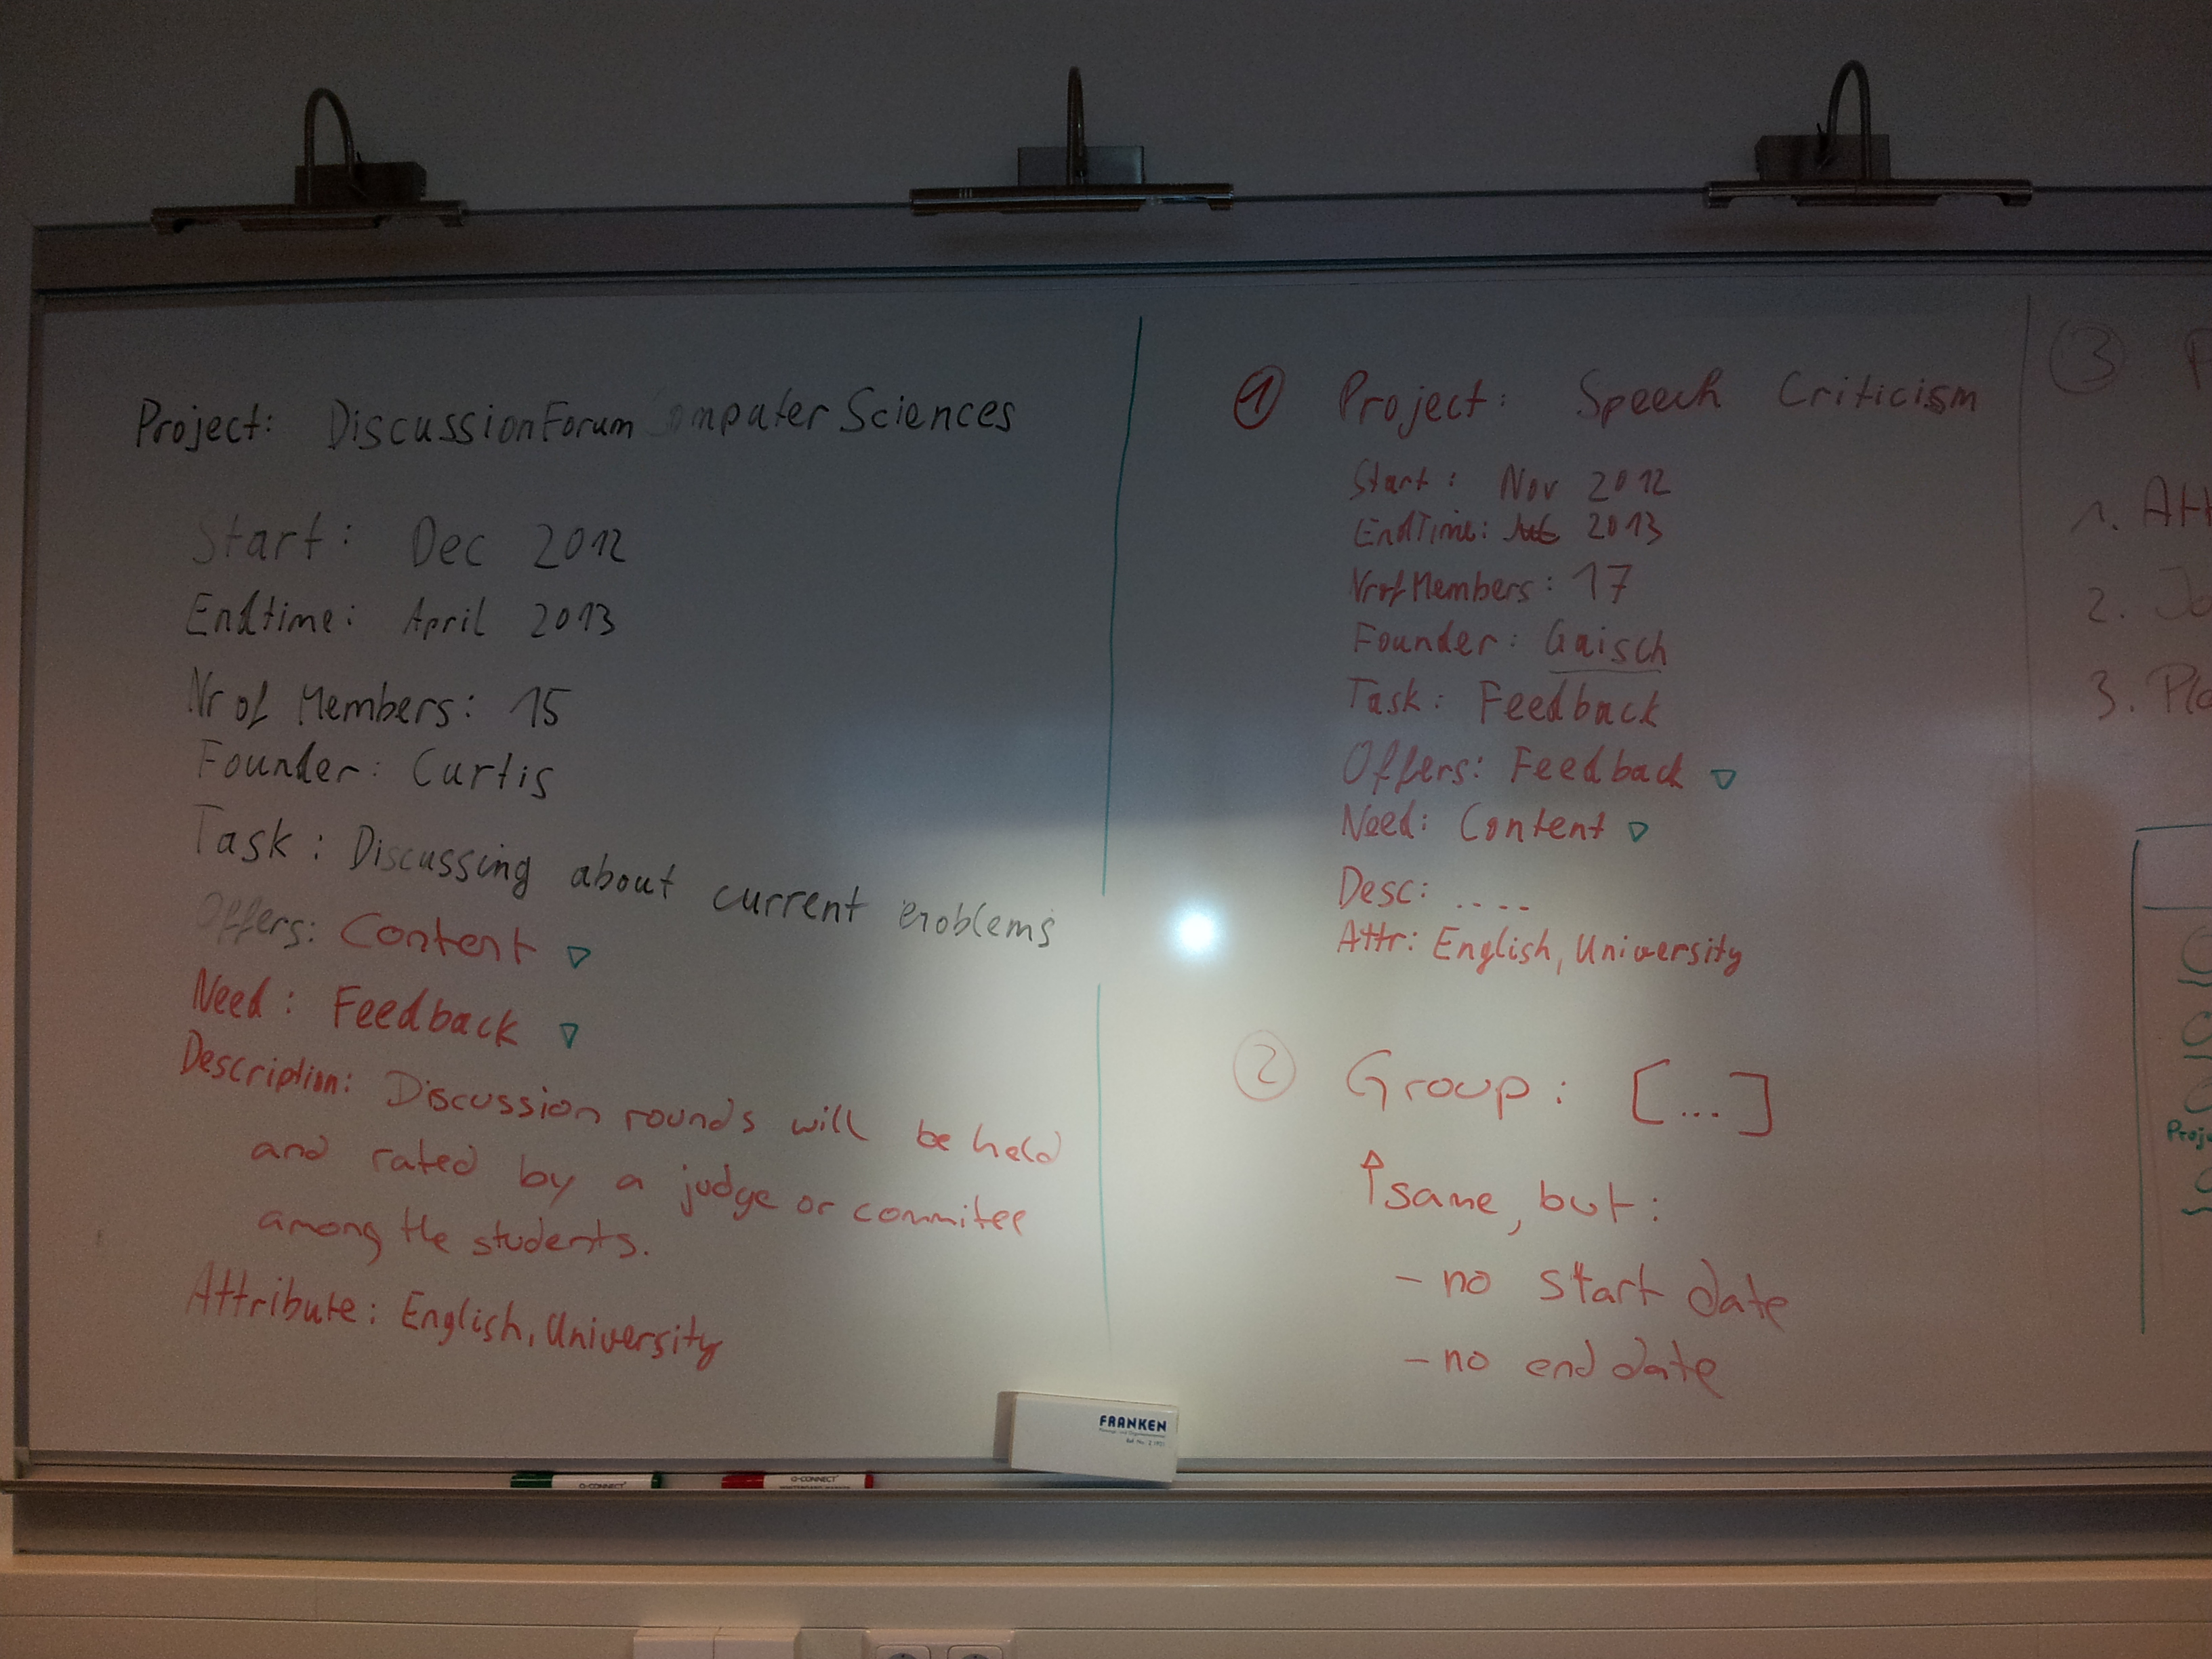 Project: DiscussionForum Computer Sciences
Start: Dec 2012
Endtime: April 2013
Nr of Members: 15
Founder: Curtis
Task: Discussing about current Problems
Offers: Content ▽
Need: Feedback ▽
Description: Discussion rounds will be held
and rated by a judge or commitee
among the students.
Attribute: English, University
① Project: Speech Criticism
Start: Nov 2012
EndTime: 2013
Nr of Members: 17
Founder: Gaisch
Task: Feedback
Offers: Feedback ▽
Need: Content ▽
Desc: ....
Attr: English, University
② Group: [...]
↑ same, but:
- no start date
- no end date
③ P
1. Att
2. Jo
3. Pla
Proj
FRANKEN
Q-CONNECT
Q-CONNECT